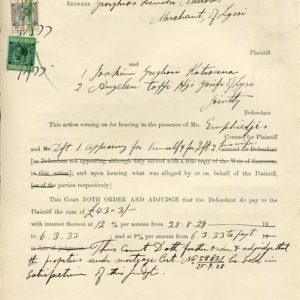 BETWEEN
Merchant, of Lysi
Plaintiff
1 Ioakim Grighori Katsouna
2 Angelou Toffi Hji Yousif of Lysi
Jointly
Defendant
This action coming on for hearing in the presence of Mr.
Counsel for Plaintiff
and Mr. Dft 1 appearing for himself & for Dft 2 Counsel for Defendant
(or Defendant not appearing although duly served with a true copy of the Writ of Summons
in this action); and upon hearing what was alleged by or on behalf of the Plaintiff
(or of the parties respectively)
This Court DOTH ORDER AND ADJUDGE that the Defendant do pay to
the Plaintiff the sum of £43=3/-
with interest thereon at 12 % per annum from 28-8-29 19
to 6.3.33 ; and at 9% per annum from 6.3.33 to payt. 19
to date of judgment. This Court Doth further order & adjudge that
the properties under mortgage Cert. No 58631 be sold in
satisfaction of the judgt. 25.9.28